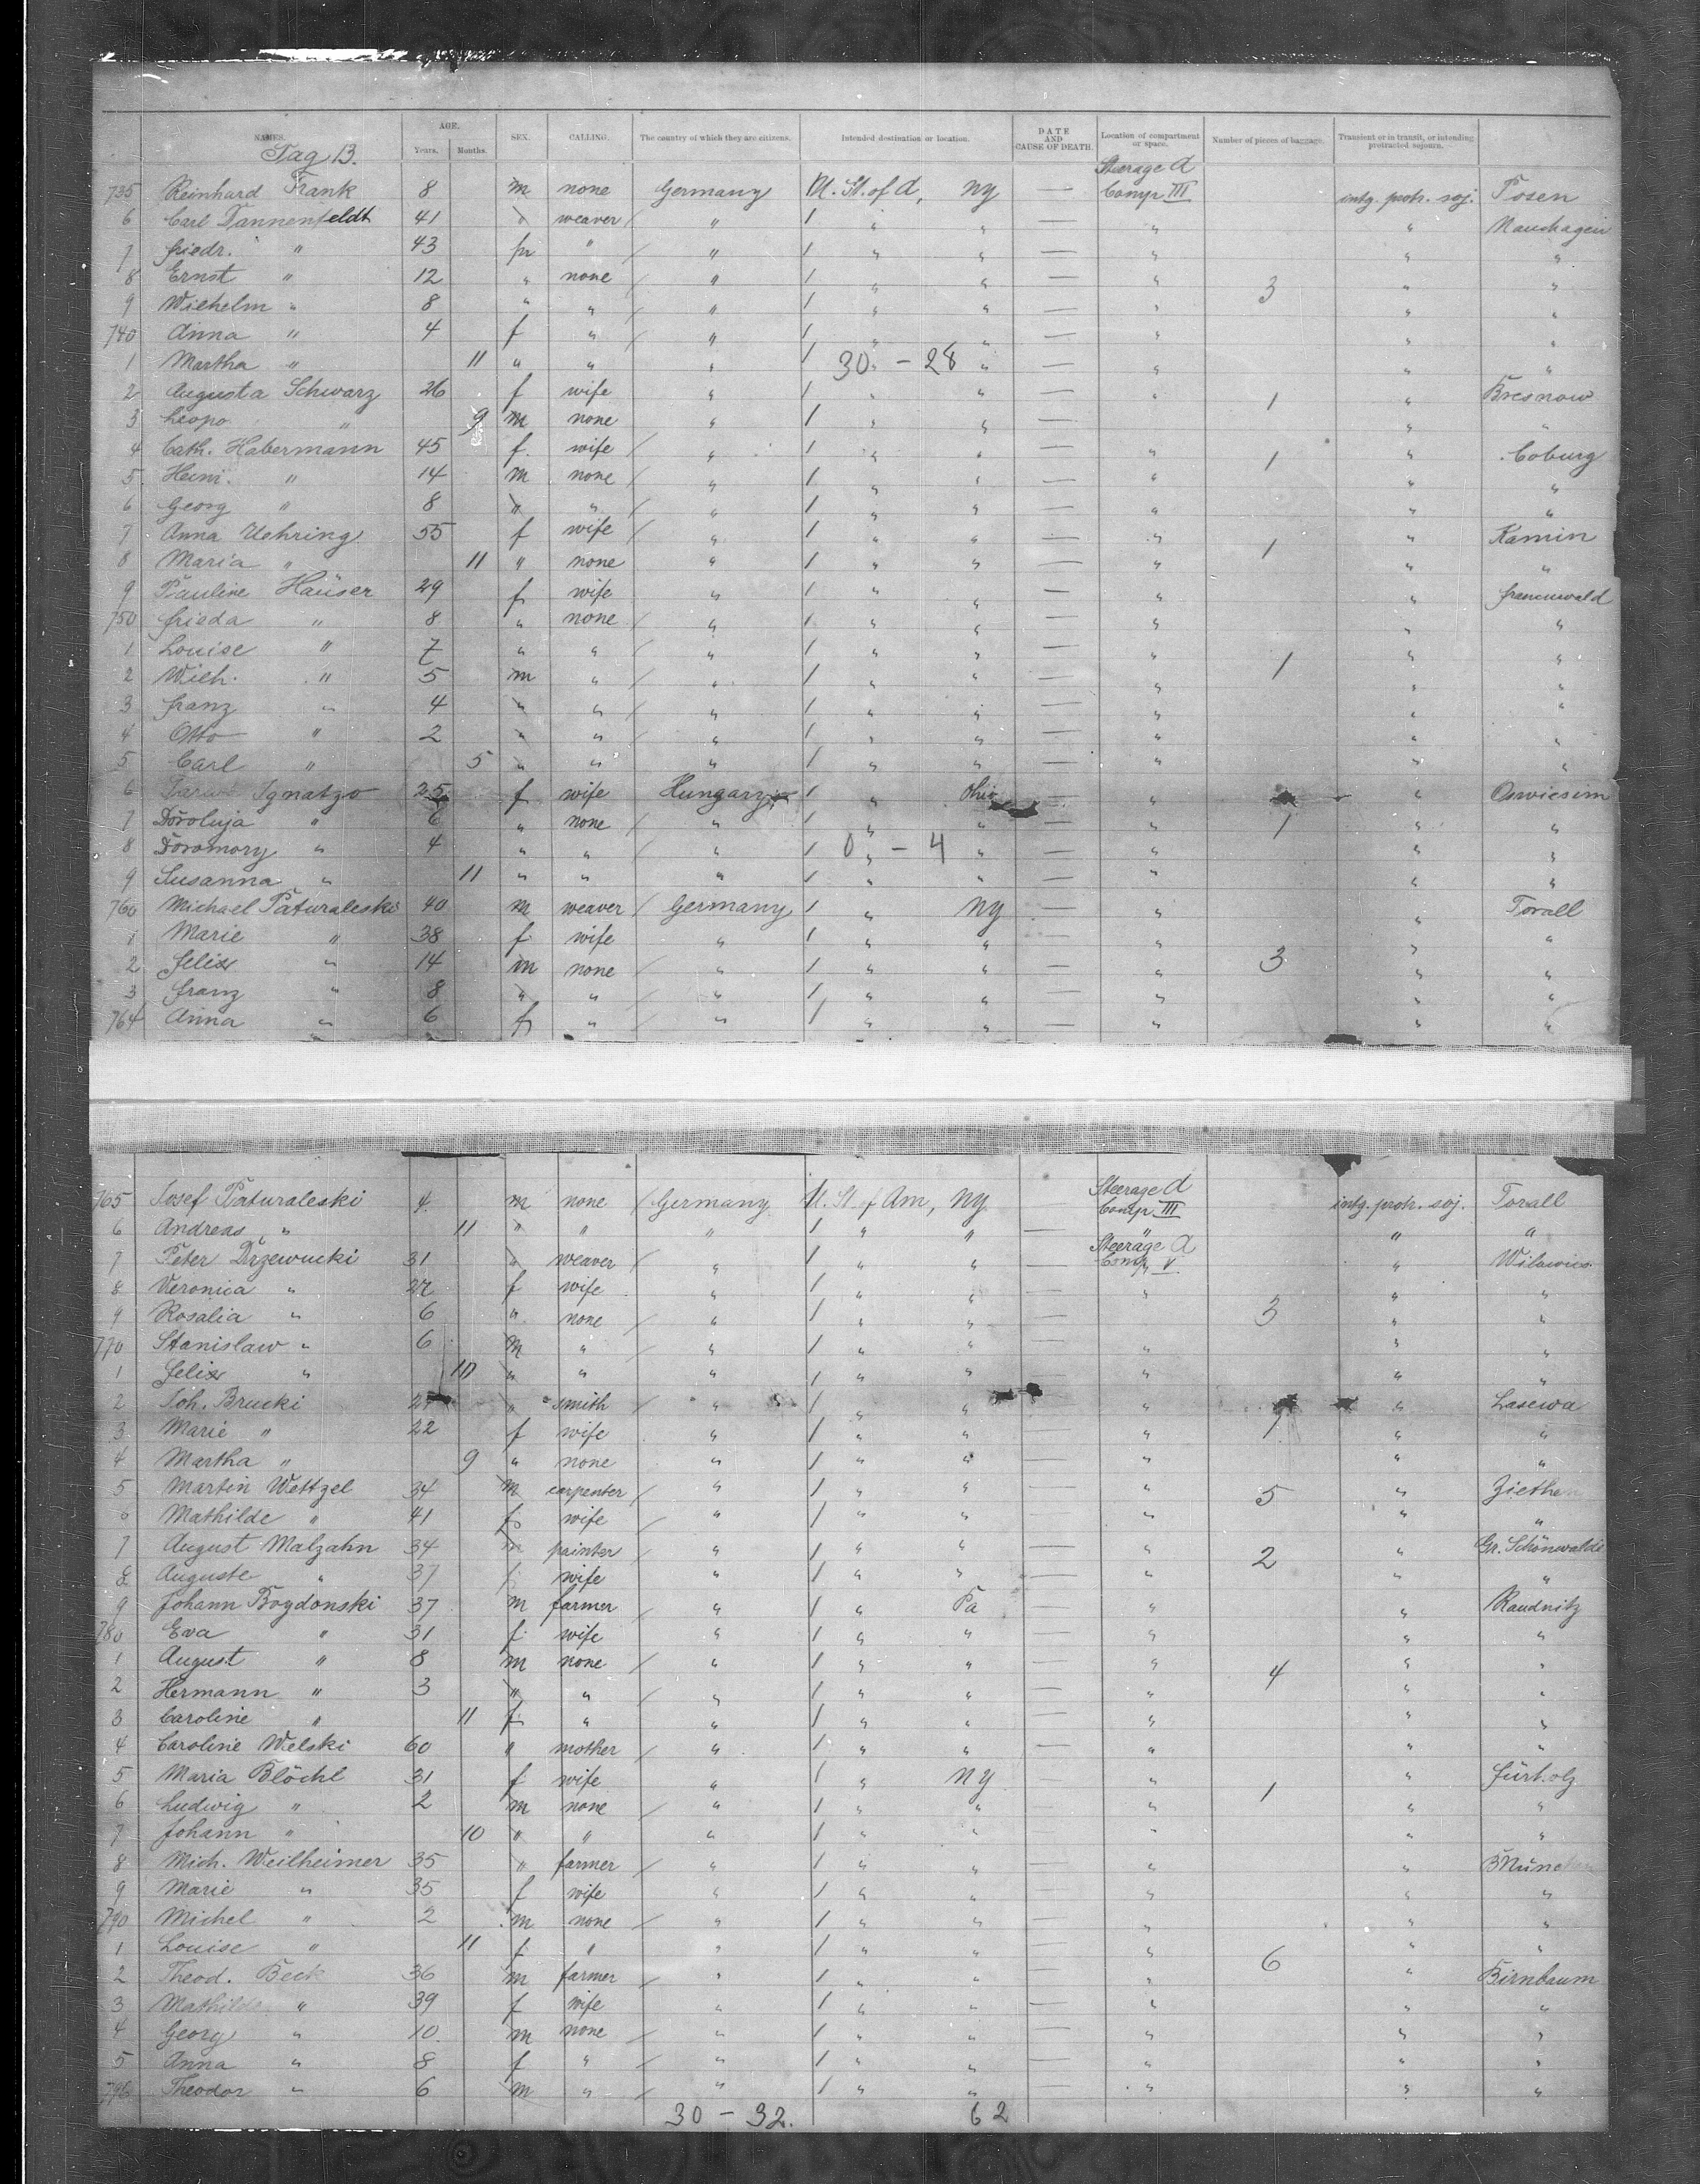 NAMES. AGE. Years. Months. SEX. CALLING. The country of which they are citizens. Intended destination or location. DATE AND CAUSE OF DEATH. Location of compartment or space. Number of pieces of baggage. Transient or in transit, or intending protracted sojourn.
Tag B.
735 Reinhard Frank 8 m none Germany U. St. of A, NY — Steerage A Comp III intg. protr. soj. Posen
6 Carl Dannenfeldt 41 " weaver " " " — " "
7 Friedr. " 43 " " " " — " " "
8 Ernst " 12 " none " " " — " 3 " "
9 Wilhelm " 8 " " " " " — " " "
740 Anna " 4 f " " " " — " " "
1 Martha " 11 " " " 30 - 28 " — " " "
2 Augusta Schwarz 26 f wife " " " — " 1 " Bresnow
3 Leopo " 9 m none " " " — " " "
4 Cath. Habermann 45 f. wife " " " — " 1 " Coburg
5 Heinr. " 14 m none " " " — " " "
6 Georg " 8 " " " " " — " " "
7 Anna Uehring 55 f wife " " " — " 1 " Kamin
8 Maria " 11 " none " " " — " " "
9 Pauline Häuser 29 f wife " " " — " "
750 Frieda " 8 " none " " " — " " "
1 Louise " 7 " " " " " — " 1 " "
2 Wilh. " 5 m " " " " — " " "
3 Franz " 4 " " " " " — " " "
4 Otto " 2 " " " " " — " " "
5 Carl " 5 " " " " " — " " "
6 Ignatzo 25 f wife Hungary " Ohio — " " Oswiesim
7 " 6 " none " " " — " 1 " "
8 " 4 " " " 0 - 4 " — " " "
9 Susanna " 11 " " " " " — " " "
760 Michael Paturaleski 40 m weaver Germany " NY — " " Torall
1 Marie " 38 f wife " " " — " " "
2 Felix " 14 m none " " " — " 3 " "
3 Franz " 8 " " " " " — " " "
764 Anna " 6 f " " " " — " " "
765 Josef Paturaleski 4 m none Germany U. St. of Am, NY Steerage A Comp III intg. protr. soj. Torall
6 Andreas " 11 " " " " " — " " "
7 Peter Drzewucki 31 " weaver " " " — Steerage A Comp V "
8 Veronica " 27 f wife " " " — " " "
9 Rosalia " 6 " none " " " — " 3 " "
770 Stanislaw " 6 m " " " " — " " "
1 Felix " 10 " " " " " — " " "
2 Joh. Brucki " smith " " " — " " Lasewa
3 Marie " 22 f wife " " " — " 1 " "
4 Martha " 9 " none " " " — " " "
5 Martin Wettzel 34 m carpenter " " " — " 5 " Ziethen
6 Mathilde " 41 f wife " " " — " " "
7 August Malzahn 34 m painter " " " — " 2 " Gr. Schönwalde
8 Auguste " 37 f wife " " " — " " "
9 Johann Bogdonski 37 m farmer " " Pa — " " Raudnitz
780 Eva " 31 f wife " " " — " " "
1 August " 8 m none " " " — " 4 " "
2 Hermann " 3 " " " " " — " " "
3 Caroline " 11 f " " " " — " " "
4 Caroline Welski 60 " mother " " " — " " "
5 Maria Blöchl 31 f wife " " NY — " 1 " Fürholz
6 Ludwig " 2 m none " " " — " " "
7 Johann " 10 " " " " " — " " "
8 Mich. Weilheimer 35 " farmer " " " — " "
9 Marie " 35 f wife " " " — " " "
790 Michel " 2 m none " " " — " " "
1 Louise " 11 f " " " " — " 6 " "
2 Theod. Beck 36 m farmer " " " — " " Birnbaum
3 Mathilde " 39 f wife " " " — " " "
4 Georg " 10 m none " " " — " " "
5 Anna " 8 f " " " " — " " "
796 Theodor " 6 m " " " " — " " "
30 - 32. 62